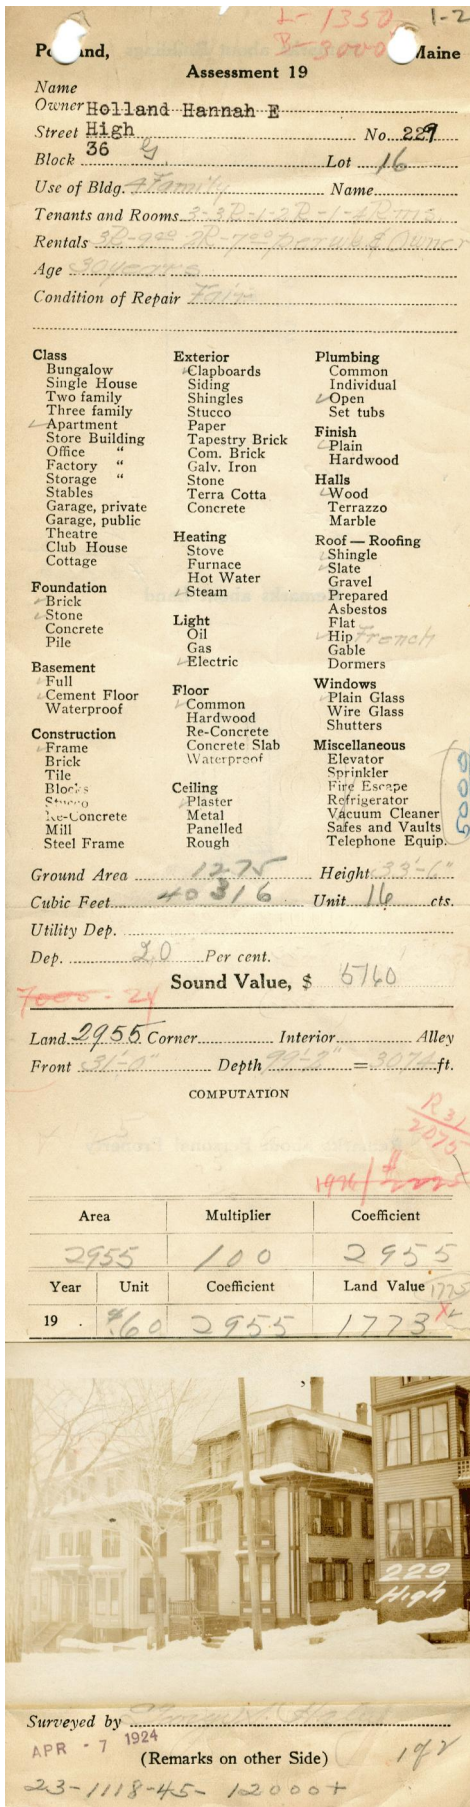 L-1350 1-2
B-3000
Portland, Maine
Assessment 19
Name
Owner Holland Hannah E
Street High No. 229
Block 36 G Lot 16
Use of Bldg. 4 Family Name
Tenants and Rooms 3-3R-1-2R-1-4Rms.
Rentals 3R-9.00 2R-7.00 per wk & Owner
Age 30 years
Condition of Repair Fair
Class
Bungalow
Single House
Two family
Three family
✓Apartment
Store Building
Office "
Factory "
Storage "
Stables
Garage, private
Garage, public
Theatre
Club House
Cottage
Foundation
✓Brick
✓Stone
Concrete
Pile
Basement
✓Full
✓Cement Floor
Waterproof
Construction
✓Frame
Brick
Tile
Blocks
Stucco
Re-Concrete
Mill
Steel Frame
Exterior
✓Clapboards
Siding
Shingles
Stucco
Paper
Tapestry Brick
Com. Brick
Galv. Iron
Stone
Terra Cotta
Concrete
Heating
Stove
Furnace
Hot Water
✓Steam
Light
Oil
Gas
✓Electric
Floor
✓Common
Hardwood
Re-Concrete
Concrete Slab
Waterproof
Ceiling
✓Plaster
Metal
Panelled
Rough
Plumbing
Common
Individual
✓Open
Set tubs
Finish
✓Plain
Hardwood
Halls
✓Wood
Terrazzo
Marble
Roof — Roofing
✓Shingle
✓Slate
Gravel
Prepared
Asbestos
Flat
✓Hip French
Gable
Dormers
Windows
✓Plain Glass
Wire Glass
Shutters
Miscellaneous
Elevator
Sprinkler
Fire Escape
Refrigerator
Vacuum Cleaner
Safes and Vaults
Telephone Equip.
Ground Area 1275 Height 33'-6"
Cubic Feet 40316 Unit 16 cts.
Utility Dep.
Dep. 20 Per cent.
Sound Value, $ 5160
7000 - 24
Land 2955 Corner Interior Alley
Front 31'-0" Depth 99'-2" = 3074 ft.
COMPUTATION
R 31
2075
Area Multiplier Coefficient
2955 100 2955
Year Unit Coefficient Land Value 1775
19 . $.60 2955 1773
229
High
Surveyed by
APR - 7 1924
(Remarks on other Side) 1 of 2
23-1118-45- 12000+